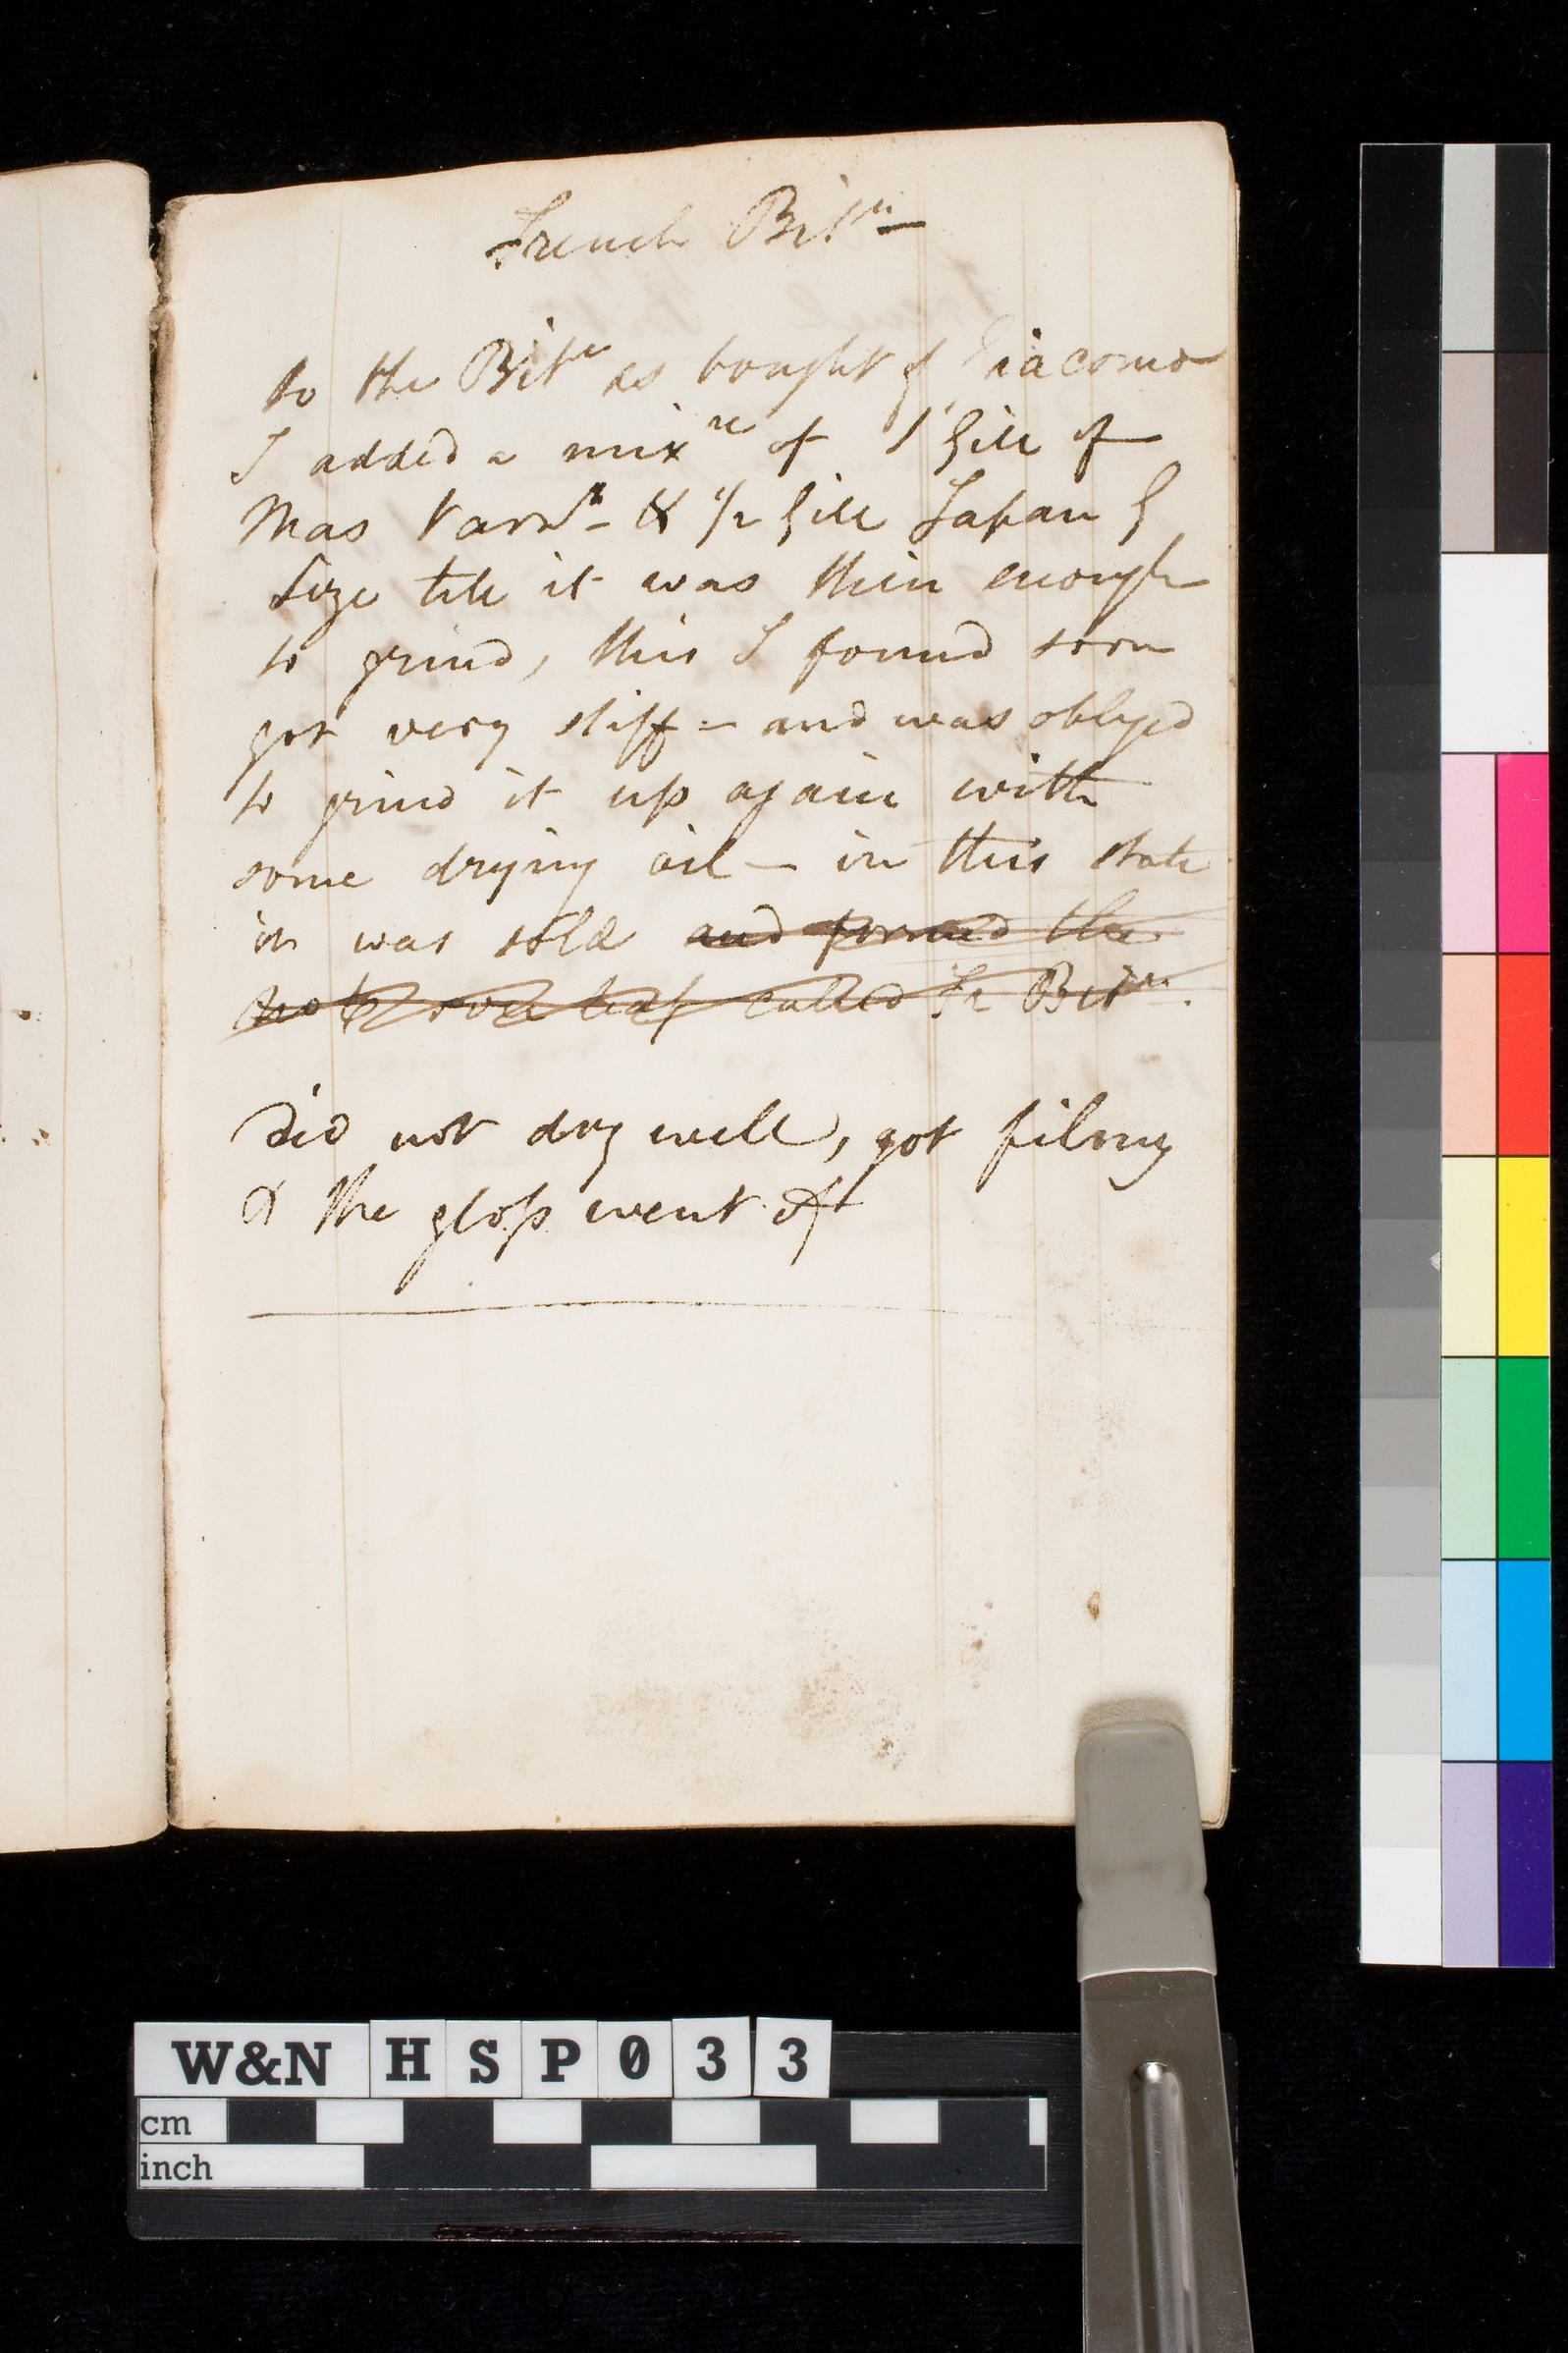 French Bitn
to the Bitn as bought of Giacomo
I added a mixre of 1 Gill of
Mas Varnh & 1/2 Gill Japan G
Size till it was thin enough
to grind, this I found soon
got very stiff – and was obliged
to grind it up again with
some drying oil – in this state
it was sold and formed the
note over leaf called Fr Bitn.
Did not dry well, got filmy
& the gloſs went off
W&N HSP033
cm
inch